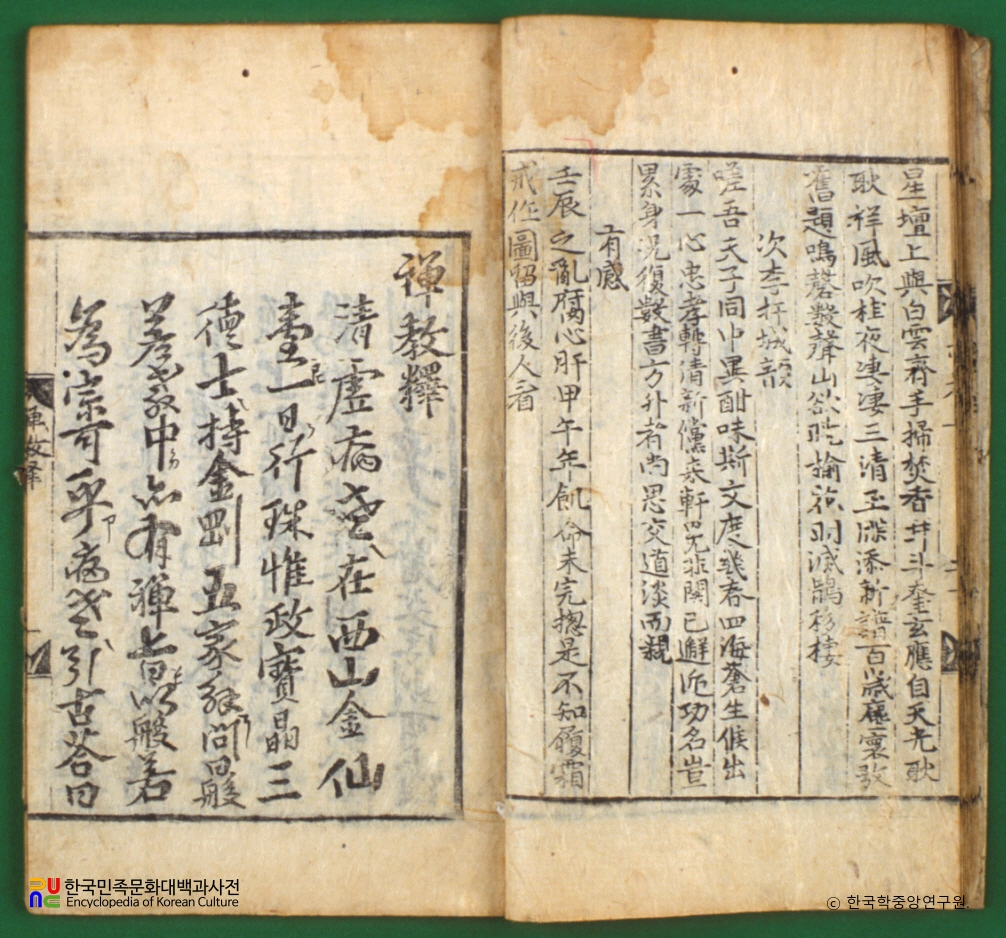 星壇上與白雲齊手掃焚香廾斗奎玄應自天光耿
耿祥風吹桂夜凄凄三清玉牒添新譜百歲塵寰改
舊題鳴磬數聲山欲曉花月滅鵲移棲
次李扞城韻
嗟吾夫子同中異酣味斯文度幾春四海蒼生候出
處一心忠孝轉清新儻來軒冕非關己邂逅功名豈
累身況復數書方外者尚思交道淡而親
有感
壬辰之亂腐心肝甲午年飢命未完摠是不知履霜
戒作圖留與後人看
禪教釋
清虛病老在西山金仙
臺一日行珠惟政寶晶三
德士持金剛五家解問曰般
若教中亦有禪旨以般若
為宗可乎病老引古答曰
禪教釋
한국민족문화대백과사전
Encyclopedia of Korean Culture
© 한국학중앙연구원.